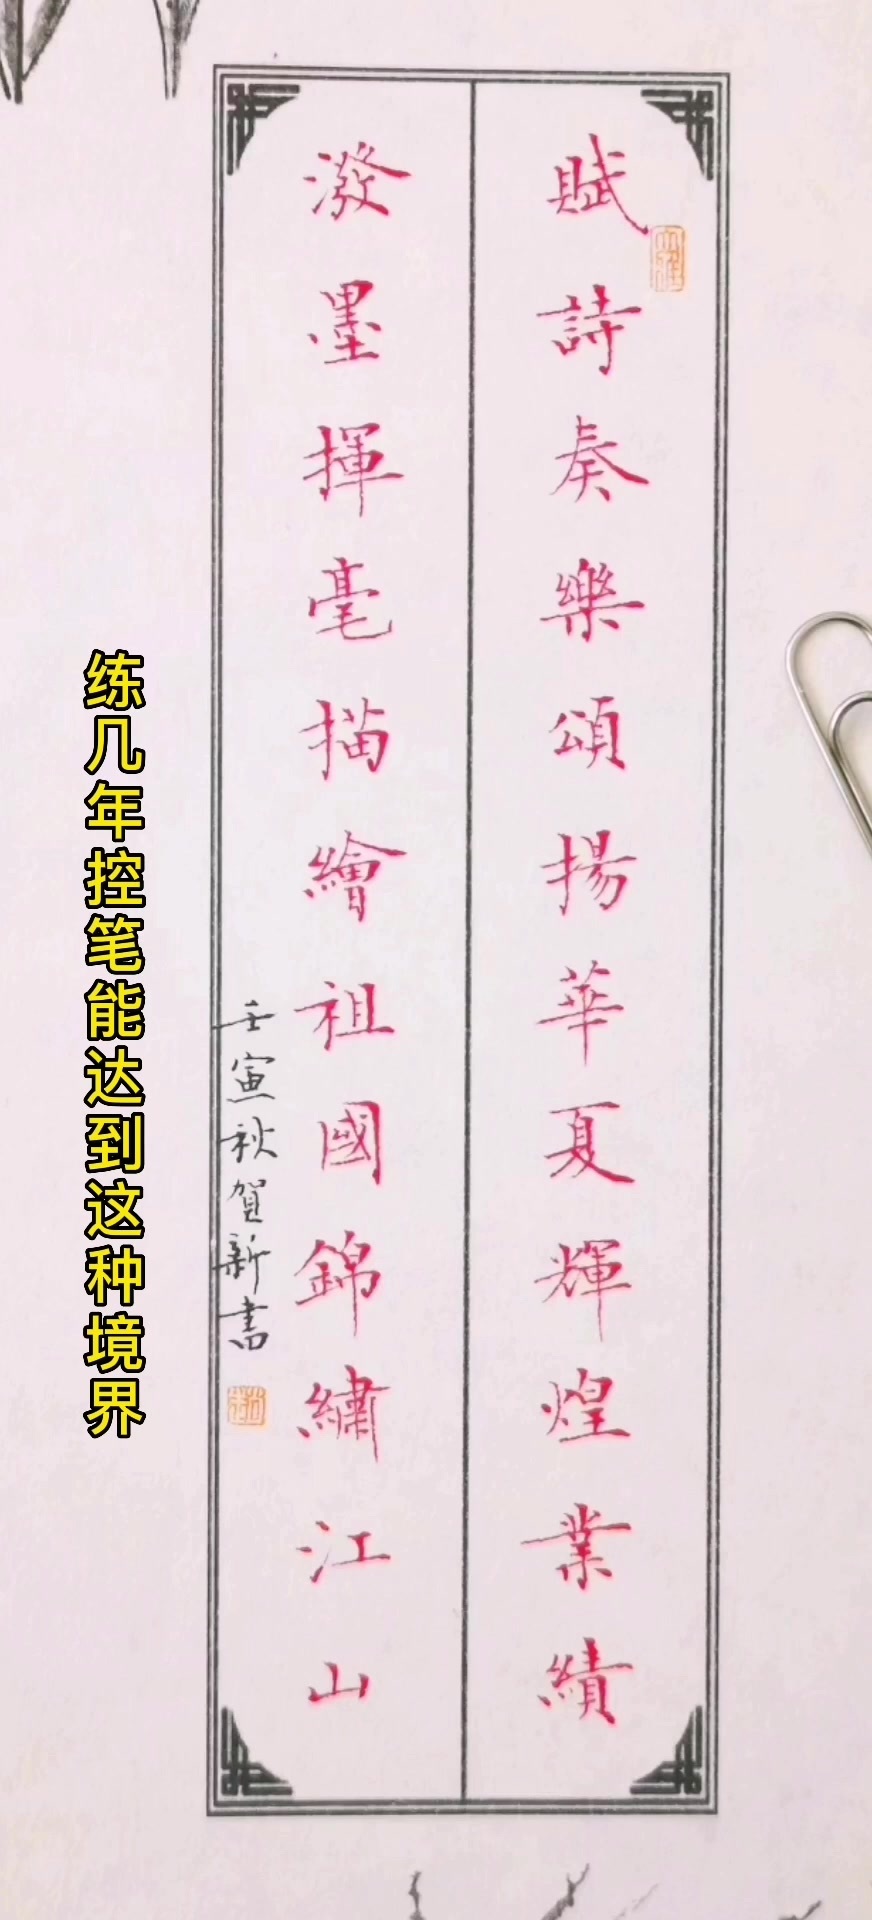 賦詩奏樂頌揚華夏輝煌業績
潑墨揮毫描繪祖國錦繡江山
壬寅秋賀新書
练几年控笔能达到这种境界